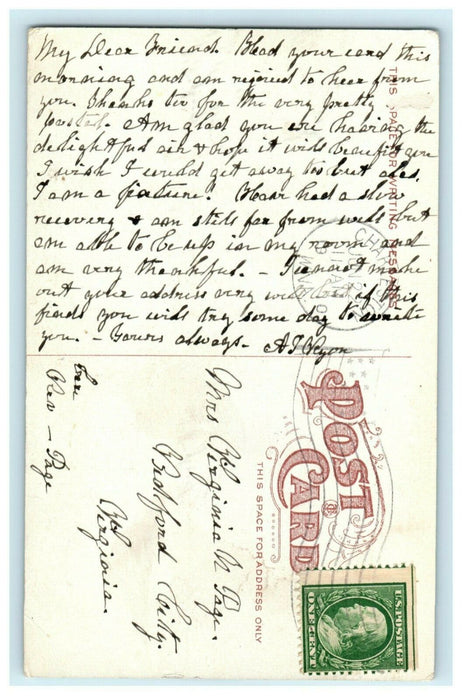 My Dear Friend. Had your card this
morning and am rejoiced to hear from
you. Thanks too for the very pretty
postal. Am glad you are having the
delightful air & hope it will benefit you
I wish I could get away too but alas,
I am a fixture! Have had a slow
recovery & am still far from well but
am able to be up in my room and
am very thankful. - I cannot make
out your address very well but if this
finds you will try some day to write
you. - Yours always. A J
THIS SPACE FOR WRITING MESSAGES
POST
CARD
THIS SPACE FOR ADDRESS ONLY
Mrs Virginia N.
Bedford City.
Virginia.
Care
Rev - Page
U.S. POSTAGE
ONE CENT